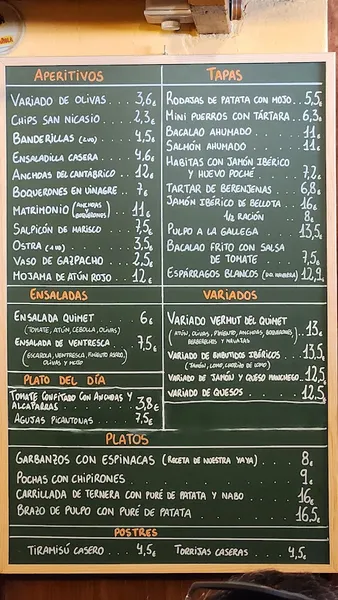 APERITIVOS
VARIADO DE OLIVAS . . . 3,6€
CHIPS SAN NICASIO . . . 2,3€
BANDERILLAS (2UD) . . . 4,5€
ENSALADILLA CASERA . . . 4,6€
ANCHOAS DEL CANTÁBRICO . 12€
BOQUERONES EN VINAGRE . . 7€
MATRIMONIO (ANCHOAS Y BOQUERONES) . . 11€
SALPICÓN DE MARISCO . . 7,5€
OSTRA (1UD) . . . 3,5€
VASO DE GAZPACHO . . . 2,5€
MOJAMA DE ATÚN ROJO . . 12€
TAPAS
RODAJAS DE PATATA CON MOJO . 5,5€
MINI PUERROS CON TÁRTARA . 6,3€
BACALAO AHUMADO . . . 11€
SALMÓN AHUMADO . . . 11€
HABITAS CON JAMÓN IBÉRICO
Y HUEVO POCHÉ . . . 7,2€
TARTAR DE BERENJENAS . . 6,8€
JAMÓN IBÉRICO DE BELLOTA . . 16€
1/2 RACIÓN . . 8€
PULPO A LA GALLEGA . . . 13,5€
BACALAO FRITO CON SALSA
DE TOMATE . . . 7,5€
ESPÁRRAGOS BLANCOS . 12,9€
ENSALADAS
ENSALADA QUIMET . . . 6€
(TOMATE, ATÚN, CEBOLLA, OLIVAS)
ENSALADA DE VENTRESCA . . . 7,5€
(ESCAROLA, VENTRESCA, PIMIENTO ASADO,
OLIVAS Y MOJO)
VARIADOS
VARIADO VERMUT DEL QUIMET
(ATÚN, OLIVAS, PIMIENTO, ANCHOAS, BOQUERONES . . 13€
BERBERECHOS Y NAVAJAS)
VARIADO DE EMBUTIDOS IBÉRICOS . . 13,5€
(JAMÓN, LOMO, CHORIZO DE LOMO)
VARIADO DE JAMÓN Y QUESO MANCHEGO . 12,5€
VARIADO DE QUESOS . . . 12,5€
PLATO DEL DÍA
TOMATE CONFITADO CON ANCHOAS Y
ALCAPARRAS . . . 3,8€
AGUJAS PICANTONAS . . . 7,5€
PLATOS
GARBANZOS CON ESPINACAS (RECETA DE NUESTRA YAYA) . . . 8€
POCHAS CON CHIPIRONES . . . 9€
CARRILLADA DE TERNERA CON PURÉ DE PATATA Y NABO . . . 16€
BRAZO DE PULPO CON PURÉ DE PATATA . . . 16,5€
POSTRES
TIRAMISÚ CASERO . . . 4,5€
TORRIJAS CASERAS . . . 4,5€